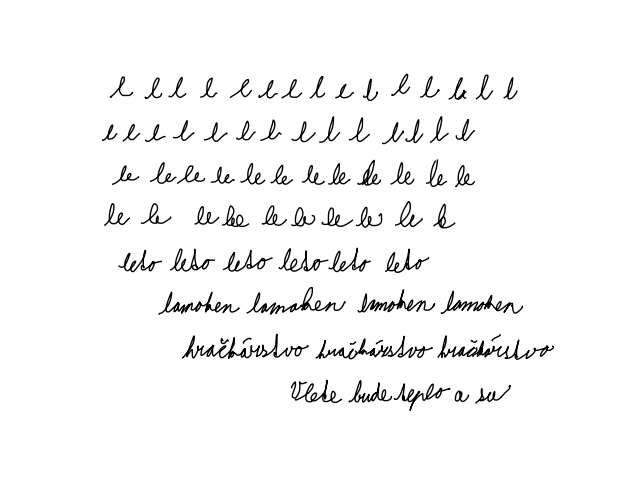 l l l l l l l l e l l l l l l
e e e l l e l l l l l l l l
le le le le le le le le le le le le
le le le le le le le le le le
leto leto leto leto leto leto
lamoken lamoken lamoken lamoken
hračkárstvo hračkárstvo hračkárstvo
V lete bude teplo a su